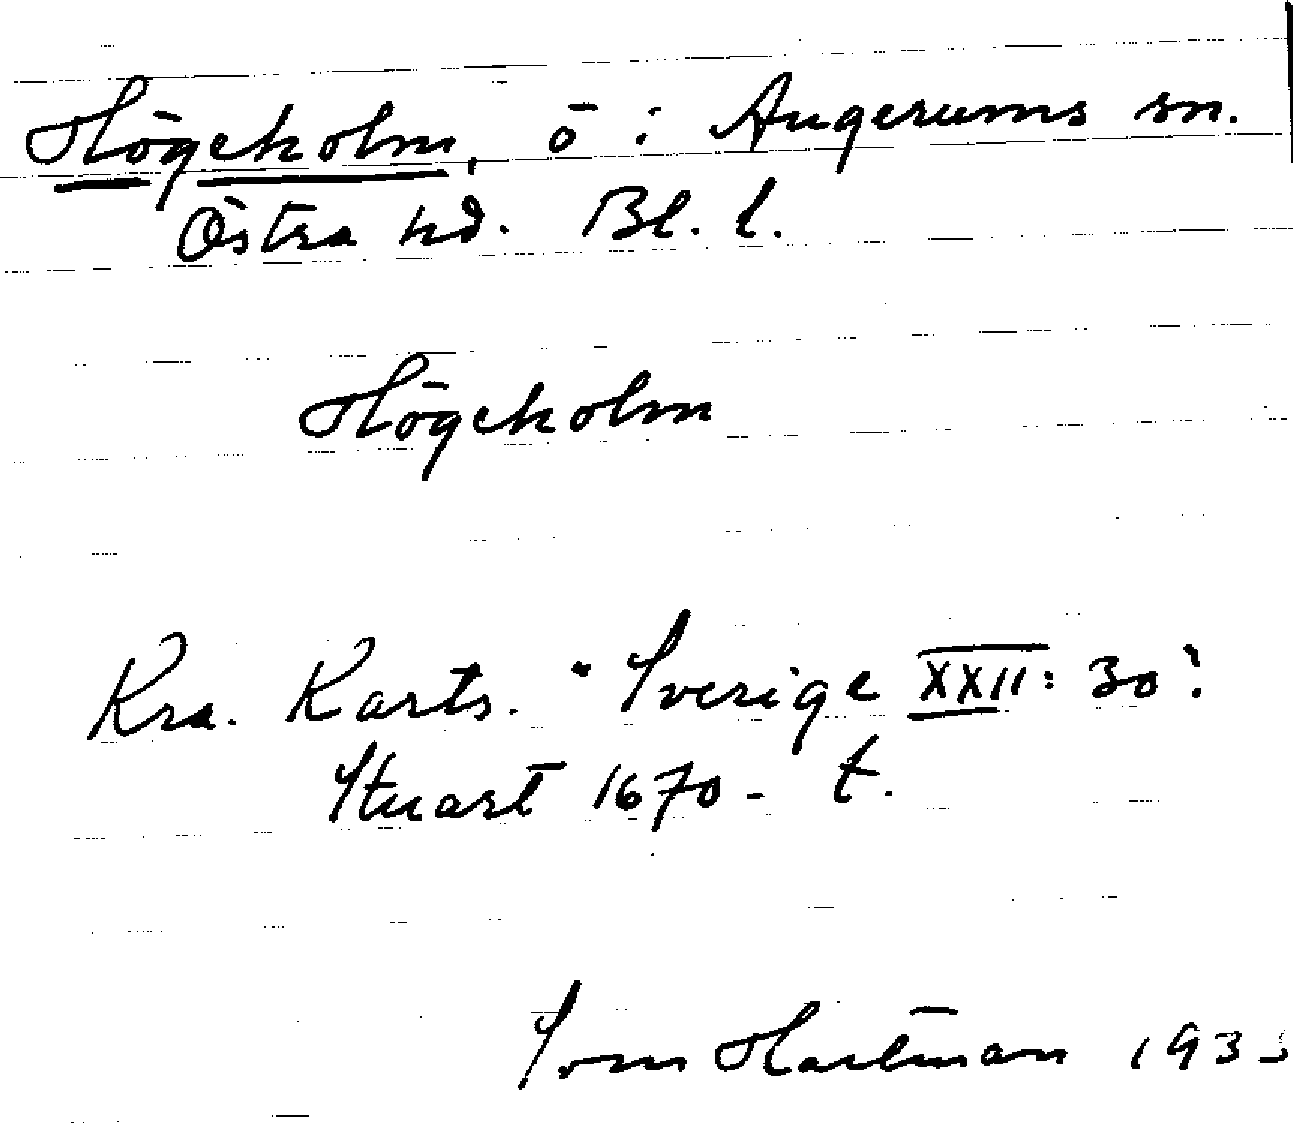 Högeholm, ö i Augerums sn.
Östra hd. Bl. l.
Högeholm
Kra. Karts. "Sverige XXII: 30".
Stuart 1670 - t.
Hartman 193